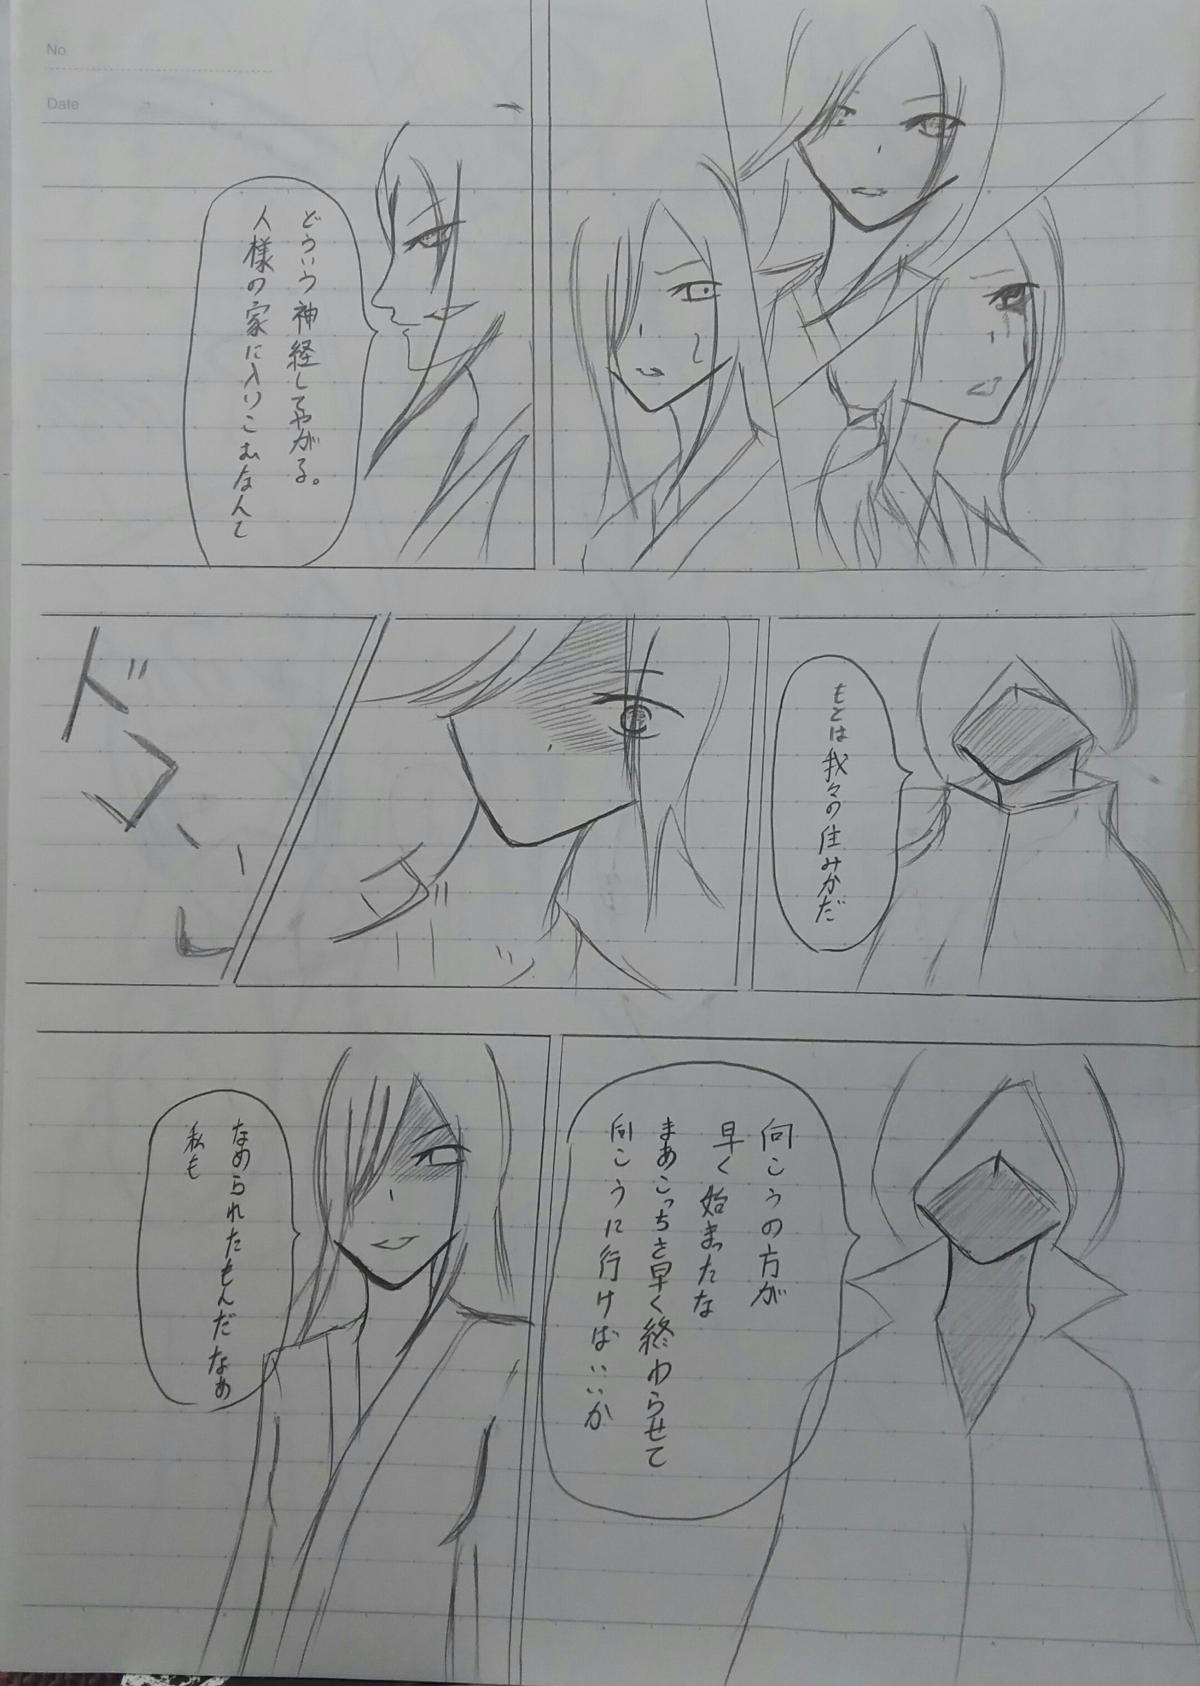 No.
Date
どういう神経してやがる。
人様の家に入りこむなんて
もとは我々の住みかだ
ゴゴッ
ドゴンッ
向こうの方が
早く始まったな
まあこっちさ早く終わらせて
向こうに行けばいいか
なめられたもんだなぁ
私も